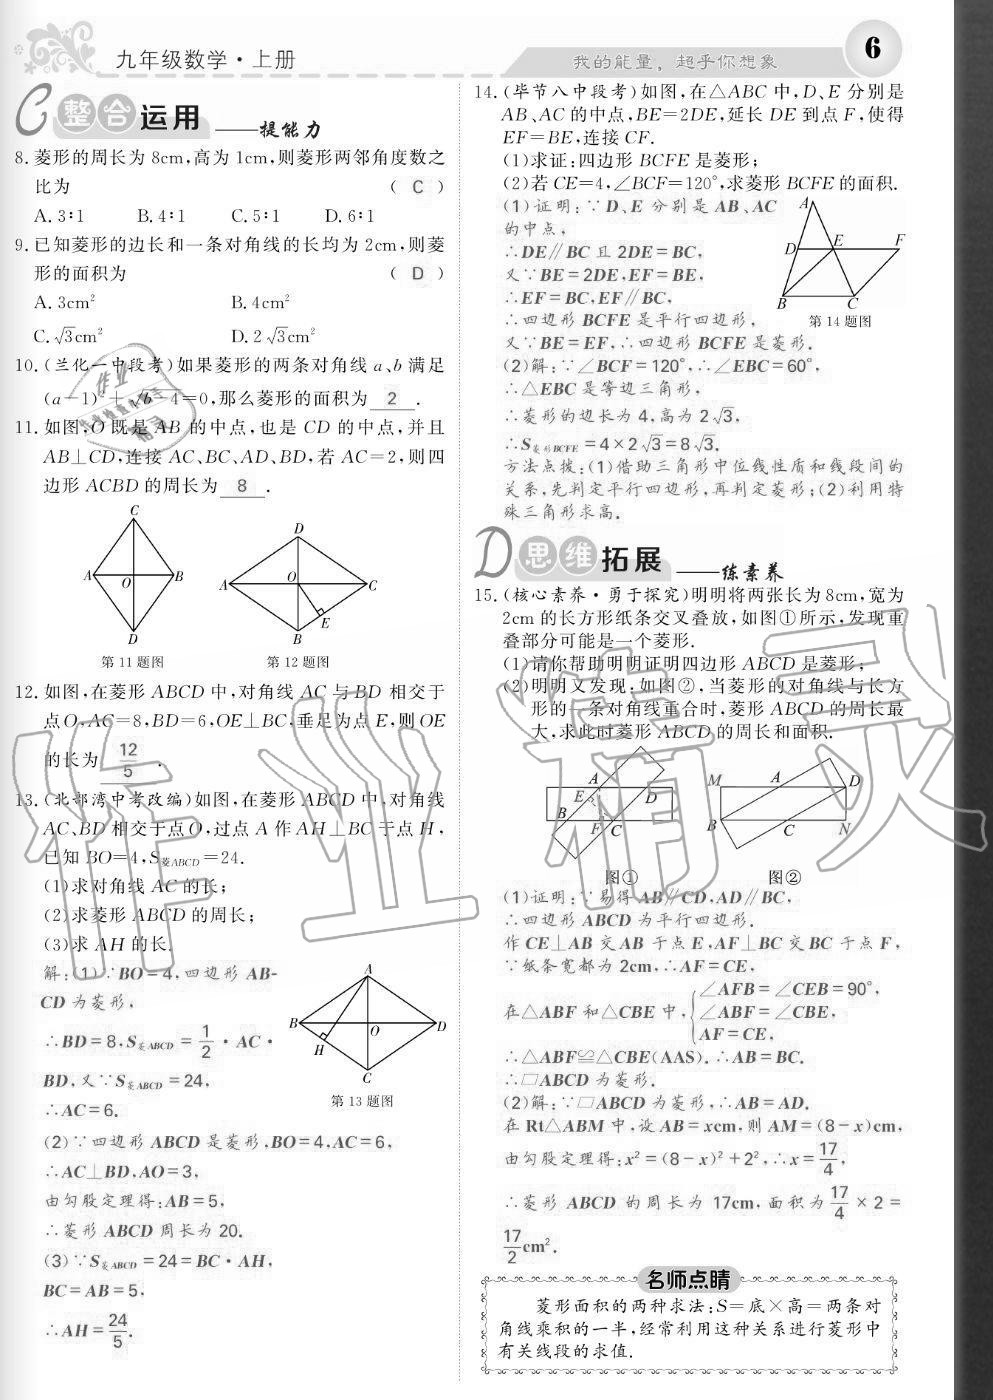 九年级数学·上册
我的能量，超乎你想象
6
C 整合运用 ——提能力
8.菱形的周长为8cm,高为1cm,则菱形两邻角度数之
比为 ( C )
A.3∶1 B.4∶1 C.5∶1 D.6∶1
9.已知菱形的边长和一条对角线的长均为2cm,则菱
形的面积为 ( D )
A.3cm² B.4cm²
C.√3cm² D.2√3cm²
10.(兰化一中段考)如果菱形的两条对角线a、b满足
(a-1)²+√b-4=0,那么菱形的面积为 2 .
11.如图,O既是AB的中点,也是CD的中点,并且
AB⊥CD,连接AC、BC、AD、BD,若AC=2,则四
边形ACBD的周长为 8 .
C
A O B
D
第11题图
D
A O C
B E
第12题图
12.如图,在菱形ABCD中,对角线AC与BD相交于
点O,AC=8,BD=6,OE⊥BC,垂足为点E,则OE
的长为 12/5 .
13.(北部湾中考改编)如图,在菱形ABCD中,对角线
AC、BD相交于点O,过点A作AH⊥BC于点H,
已知BO=4,S菱ABCD=24.
(1)求对角线AC的长;
(2)求菱形ABCD的周长;
(3)求AH的长.
解:(1)∵BO=4,四边形AB-
CD为菱形,
∴BD=8,S菱ABCD=1/2·AC·
BD,又∵S菱ABCD=24,
∴AC=6.
A
B O D
H
C
第13题图
(2)∵四边形ABCD是菱形,BO=4,AC=6,
∴AC⊥BD,AO=3,
由勾股定理得:AB=5,
∴菱形ABCD周长为20.
(3)∵S菱ABCD=24=BC·AH,
BC=AB=5,
∴AH=24/5.
14.(毕节八中段考)如图,在△ABC中,D、E分别是
AB、AC的中点,BE=2DE,延长DE到点F,使得
EF=BE,连接CF.
(1)求证:四边形BCFE是菱形;
(2)若CE=4,∠BCF=120°,求菱形BCFE的面积.
(1)证明:∵D、E分别是AB、AC
的中点,
∴DE∥BC且2DE=BC,
又∵BE=2DE,EF=BE,
∴EF=BC,EF∥BC,
∴四边形BCFE是平行四边形,
又∵BE=EF,∴四边形BCFE是菱形.
A
D E F
B C
第14题图
(2)解:∵∠BCF=120°,∴∠EBC=60°,
∴△EBC是等边三角形,
∴菱形的边长为4,高为2√3,
∴S菱形BCFE=4×2√3=8√3.
方法点拨:(1)借助三角形中位线性质和线段间的
关系,先判定平行四边形,再判定菱形;(2)利用特
殊三角形求高.
D 思维拓展 ——练素养
15.(核心素养·勇于探究)明明将两张长为8cm,宽为
2cm的长方形纸条交叉叠放,如图①所示,发现重
叠部分可能是一个菱形.
(1)请你帮助明明证明四边形ABCD是菱形;
(2)明明又发现:如图②,当菱形的对角线与长方
形的一条对角线重合时,菱形ABCD的周长最
大,求此时菱形ABCD的周长和面积.
A
E D
B
F C
图①
M A D
B C N
图②
(1)证明:∵易得AB∥CD,AD∥BC,
∴四边形ABCD为平行四边形.
作CE⊥AB交AB于点E,AF⊥BC交BC于点F,
∵纸条宽都为2cm,∴AF=CE,
在△ABF和△CBE中,
∠AFB=∠CEB=90°,
∠ABF=∠CBE,
AF=CE,
∴△ABF≌△CBE(AAS).∴AB=BC.
∴▱ABCD为菱形.
(2)解:∵▱ABCD为菱形,∴AB=AD.
在Rt△ABM中,设AB=xcm,则AM=(8-x)cm,
由勾股定理得:x²=(8-x)²+2²,∴x=17/4,
∴菱形ABCD的周长为17cm,面积为17/4×2=
17/2cm².
名师点睛
菱形面积的两种求法:S=底×高=两条对
角线乘积的一半,经常利用这种关系进行菱形中
有关线段的求值.
作业精灵